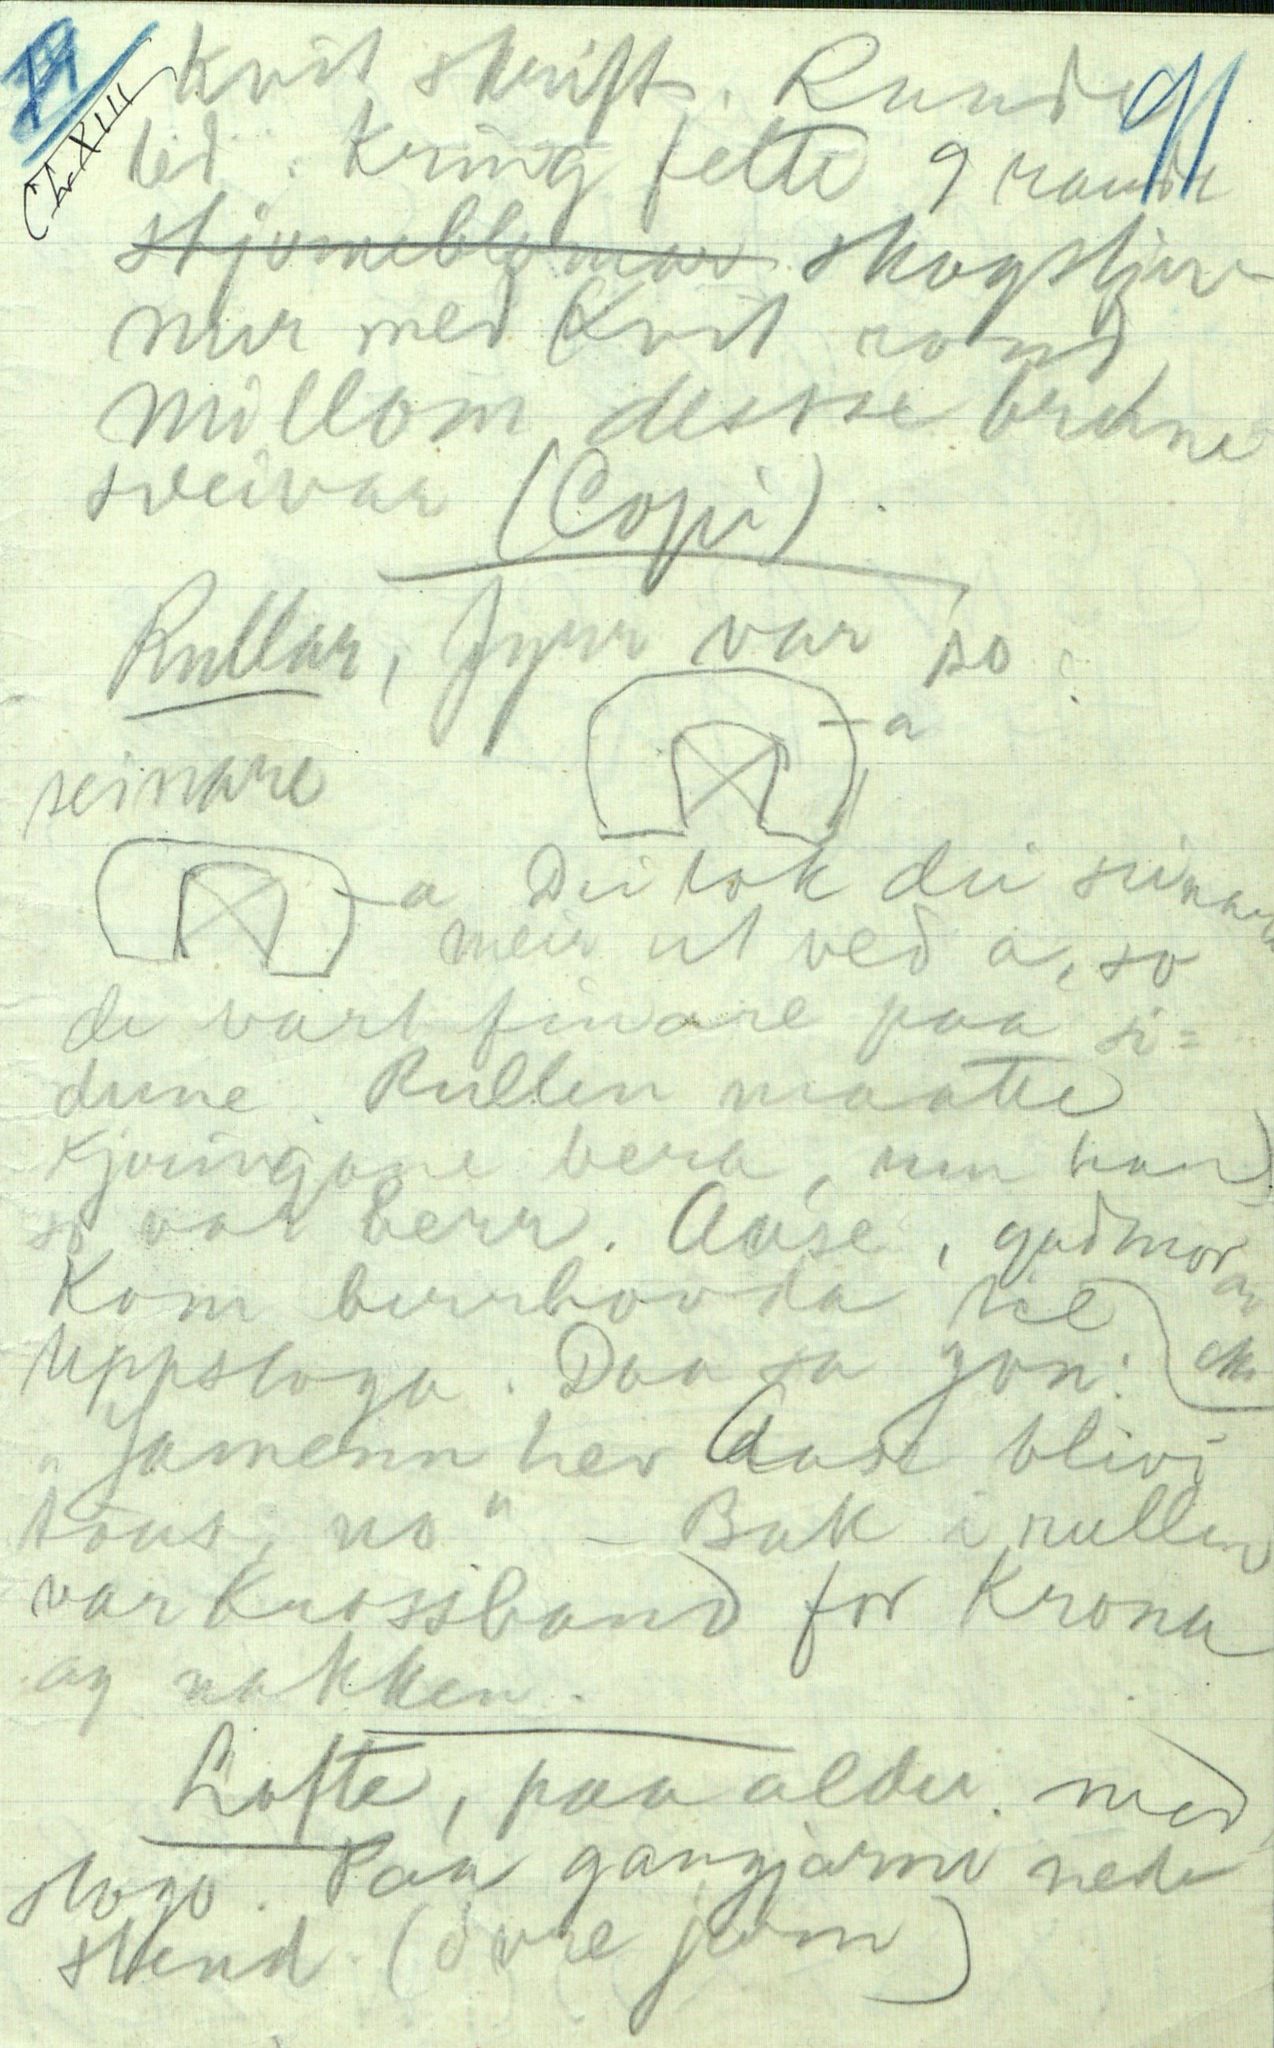 91
Ch. XIII
Kvit skrift. Runde
led. Kring felte 9 raude
stjerneblomar skogstjer-
nur med Kvit rand
millom desse brune
sveivar (Copi).
Rullar, fyrr var so:
a
seinare
a Dei tok dei seinare
meir ut ved a, so
de vart finare paa si=
dune. Rullen maatte
Kjøringane bera, um han
so var berr. Aase, godmor
Kom berrhovda ne
Uppstoga. Daa sa Jon:
"Jamenn her Aase blivi
taus, no" - Bak i rullen
var Krossband for Kruna
og nakken.
Lofte, paa alder med
stogo. Paa gangjarni nede
stend (øvre jarn)